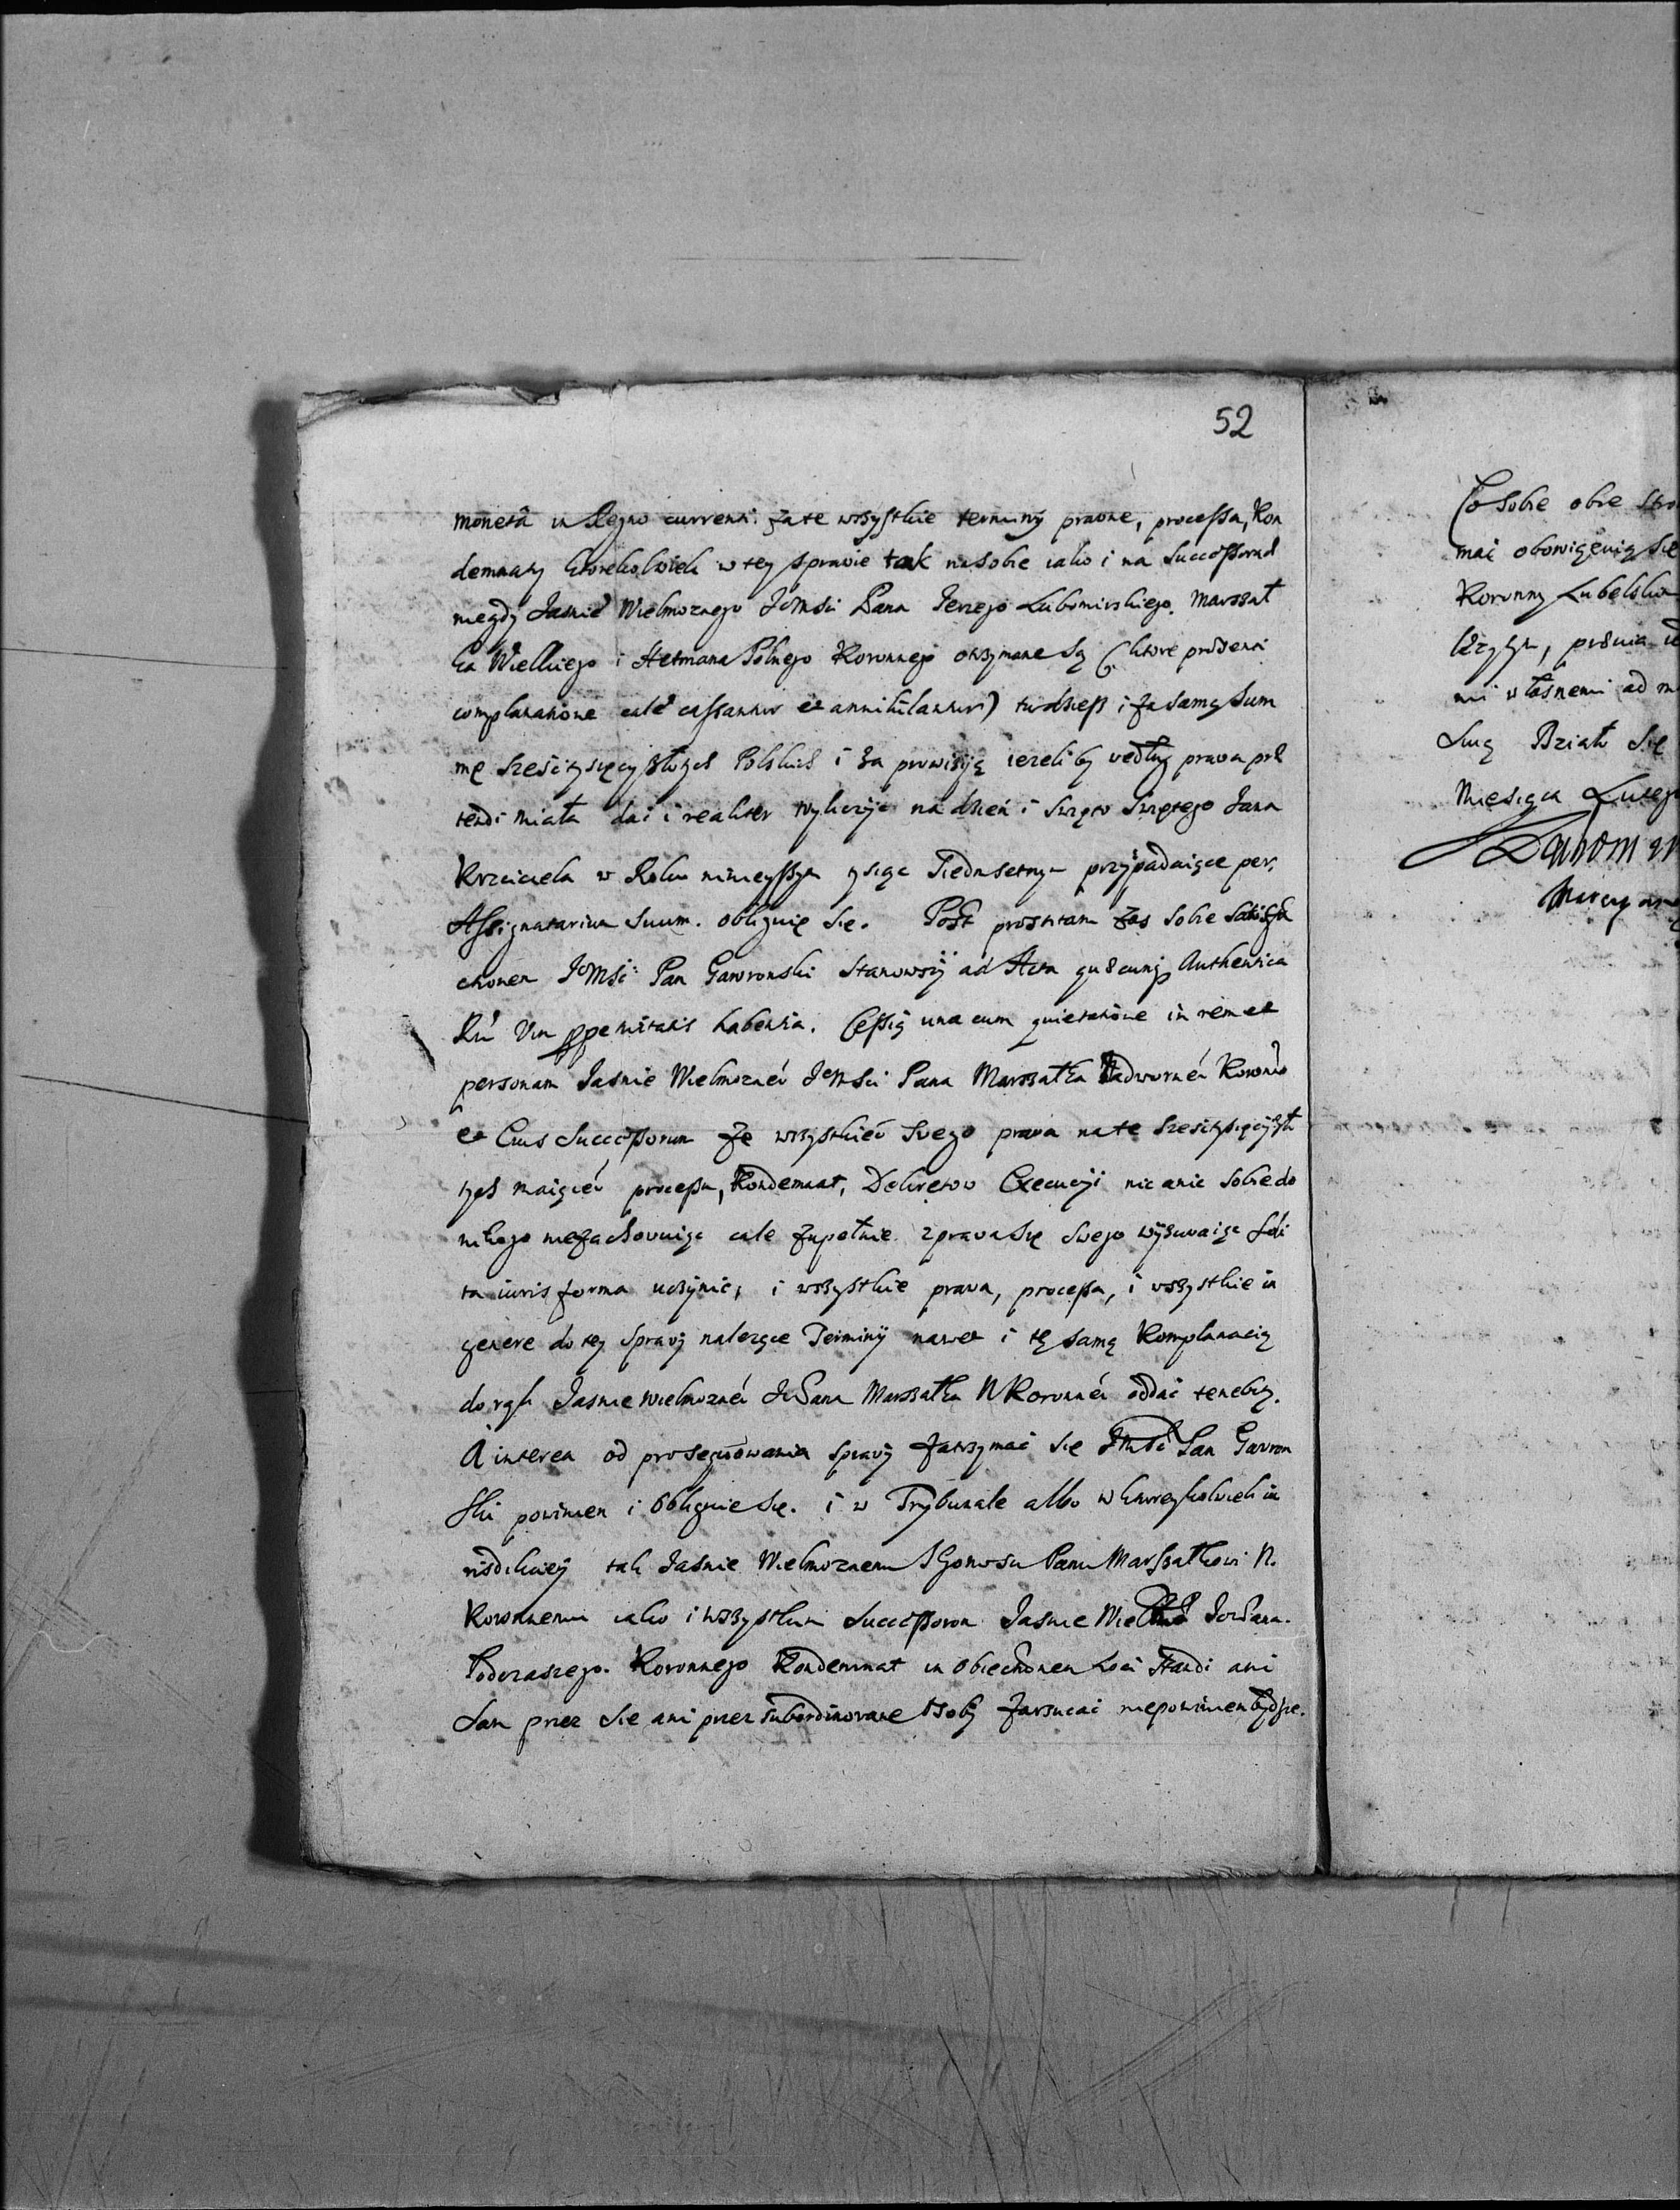 52
moneta in Regno currenti. Za te wszystkie terminy prawne, processa, Kon
demnaty ktorekolwiek w tey sprawie tak na sobie iako i na Successorach
niegdy Jasnie Wielmoznego JeMsci Pana Jerzego Lubomirskiego. Marszał
ka Wielkiego i Hetmana Polnego Koronnego otrzymane są (ktore praesenti
complanatione cale cassantur et annihilantur) tudziesz i za samą Sum
mę sześć tysięcy złotych Polskich i za prowizyą iezeliby według prawa prae
tendi miała dać i realiter wyliczyć na dzień i Swięto Swiętego Jana
Krzciciela w Roku ninieyszym tysiąc siedmsetnym przypadaiące per
Assignatarium Suum. obliguie się. Post praestitam zas sobie satisfa
ctionem JeMść Pan Gawronski Stanowszy ad Acta quaecunq Authentica
Seu Vim ppetuitatis habentia. Cessią una cum quietatione in rem et
personam Jasnie Wielmozneo JeMsci Pana Marszałka Nadworneo Koronneo
et Eius Successorum ze wszystkieo swego prawa na te sześć tysięcy zło
tych maiąceo processu, Kondemnat, Dekretow Execucyi nic a nic sobie do
nikogo niezachowuiąc cale zupełnie z prawa się swego wyzuwaiąc soli
ta iuris forma uczynić, i wszystkie prawa, processa, i wszystkie in
genere do tey sprawy nalezące Terminy nawet i tę samą Komplanacią
do rąk Jasnie Wielmozneo Je Pana Marszałka N Koronneo oddać tenebit.
A interea od prosequowania sprawy zatrzymać się JMść Pan Gawron
ski powinien i obliguie się. i w Trybunale albo w ktoreykolwiek iu
risdikciey tak Jasnie Wielmoznemu JGomosci Panu Marszałkowi N.
Koronnemu iako i wszystkim Successorom Jasnie Wielmo Je Pana.
Podczaszego. Koronnego Kondemnat in obiectionem Loci Standi ani
Sam przez się ani przez subordinowane osoby zarzucać niepowinien będzie.
Co sobie obie stro
mać obowięzuią się
Koronny Lubelski
mi własnemi ad m
Dział się
Miesiąca Lutego